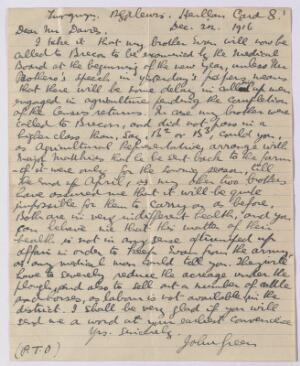 Dec. 20. 1916
Dear Mr Davies,
I take it that my brother Evan will now be
called to Brecon to be examined by the Medical
Board at the beginning of the new year, unless Mr
Prothero's speech in yesterday's papers means
that there will be some delay in calling up men
engaged in agriculture pending the completion
of the Census returns. In case my brother were
called to Brecon, and did not pass in a
higher class than, say, or B3, could you,
as Agricultural Representative, arrange with
Major Matthias that he be sent back to the farm
if it were only for the sowing season, till
the end of April, as my other two brothers
have assured me that it will be quite
impossible for them to carry on as before.
Both are in very indifferent health, and you
can believe me that this matter of their
health is not in any sense a trumped up
affair in order to keep Evan from the army
as any medical man could tell you. They will
have to severely reduce the acreage under the
plough, and also to sell out a number of cattle
and horses, as labour is not available in the
district. I shall be very glad if you will
send me a word at your earliest convenience
Yrs. Sincerely,
John Green
(P.T.O)